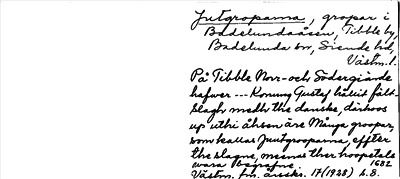 Jutgroparna, gropar i
Badelundaåsen, Tibble by,
Badelunda sn, Siende hd,
Västm. l.
På Tibble Norr- och Södergiärde
hafwer --- Konung Gustaf hållit fält-
slagh medh the danske, därhoos
up uthi åhsen äre Många groopar,
som kallas Juutgrooparna, effter
the slagne, menas ther hoopetals
wara begrafne. 1682
Västm. fm. årsskr. 17 (1928) s. 8.